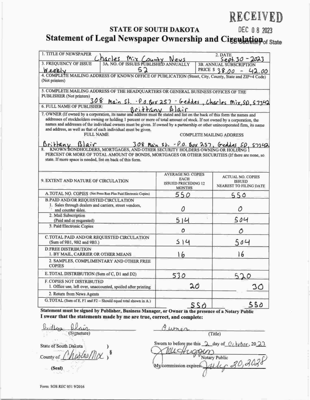 RECEIVED
DEC 08 2023
STATE OF SOUTH DAKOTA
Statement of Legal Newspaper Ownership and Circulation
of State
1. TITLE OF NEWSPAPER
Charles Mix County News
2. DATE
Sept 30 - 2023
3. FREQUENCY OF ISSUE
Weekly
3A. NO. OF ISSUES PUBLISHED ANNUALLY
52
3B. ANNUAL SUBSCRIPTION
PRICE $ 38.00 - 42.00
4. COMPLETE MAILING ADDRESS OF KNOWN OFFICE OF PUBLICATION (Street, City, County, State and ZIP+4 Code)
(Not printers)
5. COMPLETE MAILING ADDRESS OF THE HEADQUARTERS OR GENERAL BUSINESS OFFICES OF THE
PUBLISHER (Not printers)
308 Main St. - P.O Box 257 - Geddes, Charles Mix, SD, 57342
6. FULL NAME OF PUBLISHER:
Brittany Blair
7. OWNER (If owned by a corporation, its name and address must be stated and list on the back of this form the names and
addresses of stockholders owning or holding 1 percent or more of total amount of stock. If not owned by a corporation, the
names and addresses of the individual owners must be given. If owned by a partnership or other unincorporated firm, its name
and address, as well as that of each individual must be given.
FULL NAME
COMPLETE MAILING ADDRESS
Brittany Blair
308 Main St. P.O. Box 257, Geddes SD, 57342
8. KNOWN BONDHOLDERS, MORTGAGES, AND OTHER SECURITY HOLDERS OWNING OR HOLDING 1
PERCENT OR MORE OF TOTAL AMOUNT OF BONDS, MORTGAGES OR OTHER SECURITIES (If there are none, so
state. If more space is needed, list on back of this form.
9. EXTENT AND NATURE OF CIRCULATION
AVERAGE NO. COPIES
EACH
ISSUED PRECEDING 12
MONTHS
ACTUAL NO. COPIES
ISSUED
NEAREST TO FILING DATE
A. TOTAL NO. COPIES (Net Press Run Plus Paid Electronic Copies)
550
550
B. PAID AND/OR REQUESTED CIRCULATION
1. Sales through dealers and carriers, street vendors,
and counter sales.
0
0
2. Mail Subscription
(Paid and or requested)
514
504
3. Paid Electronic Copies
0
0
C. TOTAL PAID AND/OR REQUESTED CIRCULATION
(Sum of 9B1, 9B2 and 9B3.)
514
504
D. FREE DISTRIBUTION
1. BY MAIL, CARRIER OR OTHER MEANS
16
16
2. SAMPLES, COMPLIMENTARY AND OTHER FREE
COPIES
E. TOTAL DISTRIBUTION (Sum of C, D1 and D2)
530
520
F. COPIES NOT DISTRIBUTED
1. Office use, left over, unaccounted, spoiled after printing
20
30
2. Return from News Agents
G. TOTAL (Sum of E, F1 and F2 - Should equal sum shown in A.)
550
550
Statement must be signed by Publisher, Business Manager, or Owner in the presence of a Notary Public
I swear that the statements made by me are true, correct, and complete:
Owner
(Signature)
(Title)
State of South Dakota
County of Charles Mix
Sworn to before me this 2 day of October, 20 23
Notary Public
(Seal)
My commission expires: July 20, 2028